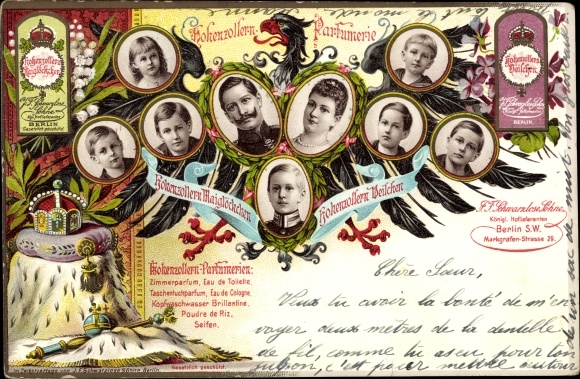 Hohenzollern-Parfumerie
Hohenzollern
Maiglöckchen
J.F. Schwarzlose
Söhne
Kgl. Hoflieferanten
BERLIN
Gesetzlich geschützt
Hohenzollern
Veilchen
J.F. Schwarzlose
Söhne
BERLIN
Hohenzollern Maiglöckchen
Hohenzollern Veilchen
J.F. Schwarzlose Söhne,
Königl. Hoflieferanten
Berlin S.W.
Markgrafen-Strasse 29.
Hohenzollern-Parfumerien:
Zimmerparfum, Eau de Toilette,
Taschentuchparfum, Eau de Cologne,
Kopfwaschwasser Brillantine,
Poudre de Riz,
Seifen.
Gesetzlich geschützt.
Chère Sœur,
Veux tu avoir la bonté de m'en-
voyer deux mètres de la dentelle
de fil, comme tu as eu pour ton
jupon, c'est pour mettre autour